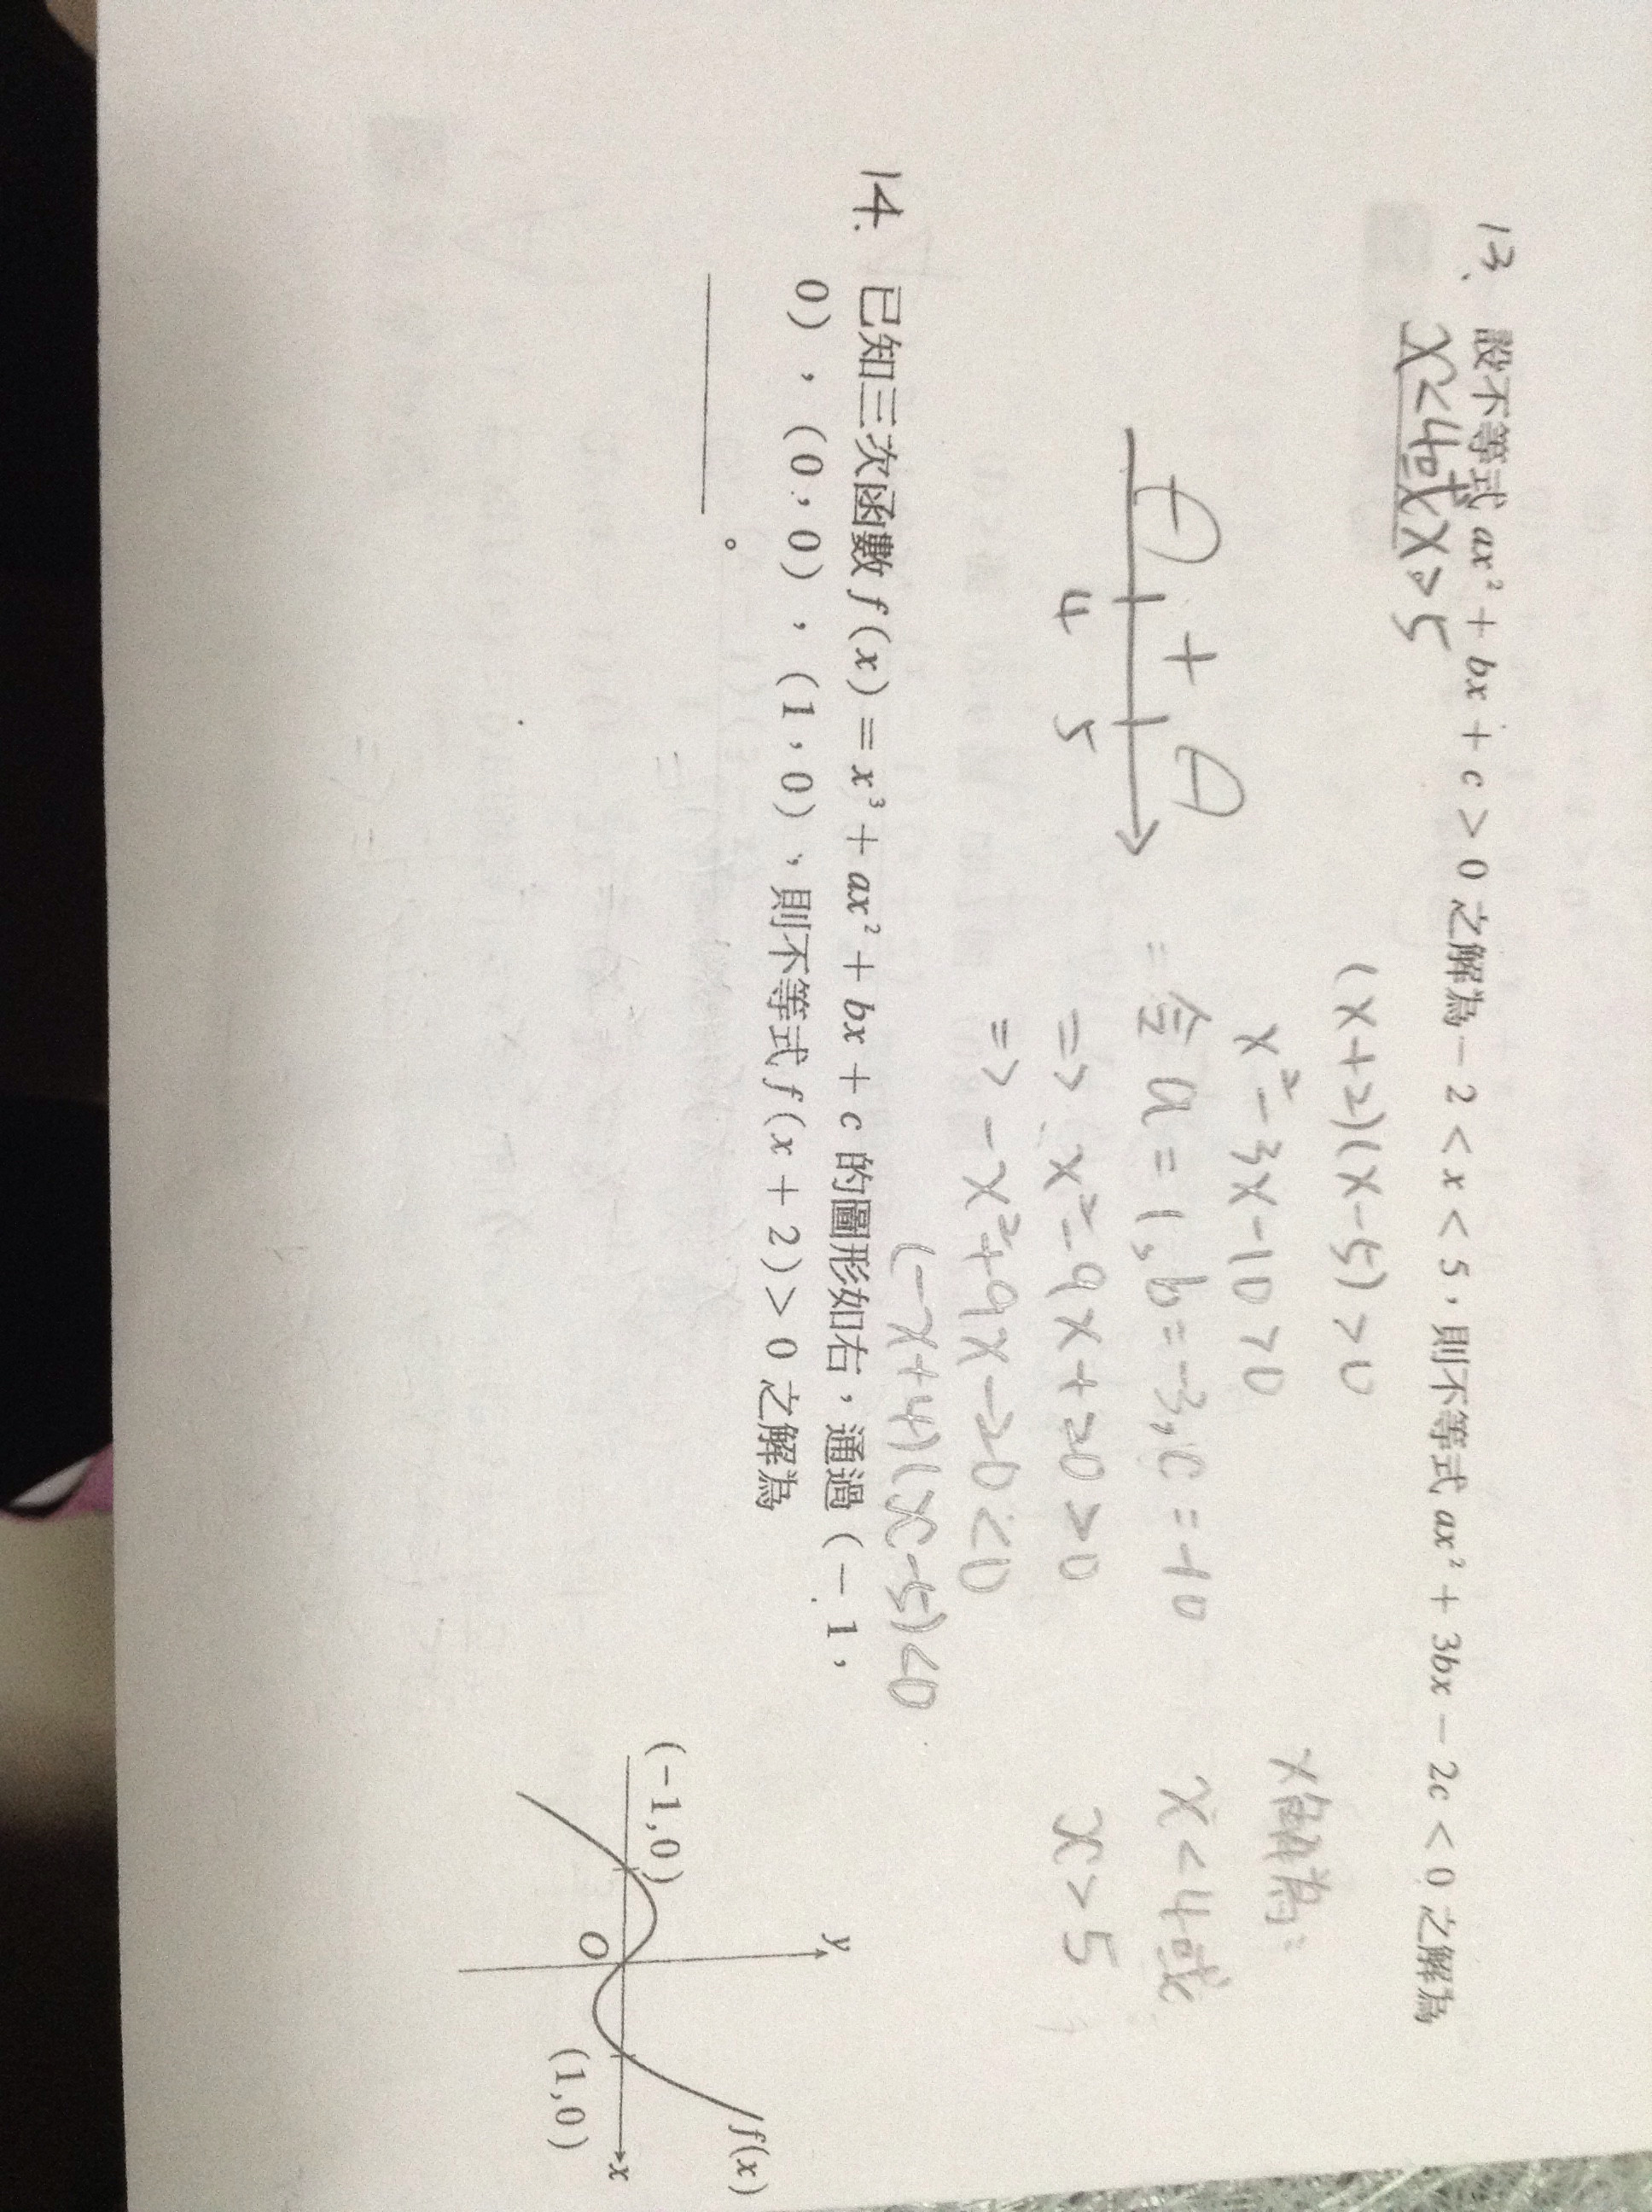 13. 設不等式 ax² + bx + c > 0 之解為 -2 < x < 5，則不等式 ax² + 3bx - 2c < 0 之解為
x<4或x>5
(x+2)(x-5)>0
x²-3x-10>0
= 令 a=1, b=-3, c=-10
=> x²-9x+20>0
=> -x²+9x-20<0
(-x+4)(x-5)<0
- + -
4 5
x解為:
x<4或
x>5
14. 已知三次函數 f(x) = x³ + ax² + bx + c 的圖形如右，通過 (-1，
0)，(0，0)，(1，0)，則不等式 f(x + 2) > 0 之解為
。
y
f(x)
(-1,0)
O
x
(1,0)